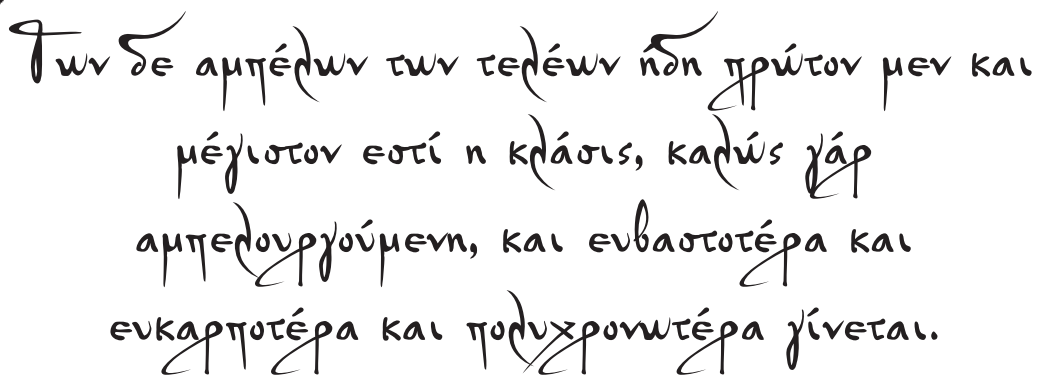 Των δε αμπέλων των τελέων ήδη πρώτον μεν και
μέγιστον εστί η κλάσις, καλώς γάρ
αμπελουργούμενη, και ευβαστοτέρα και
ευκαρποτέρα και πολυχρονωτέρα γίνεται.